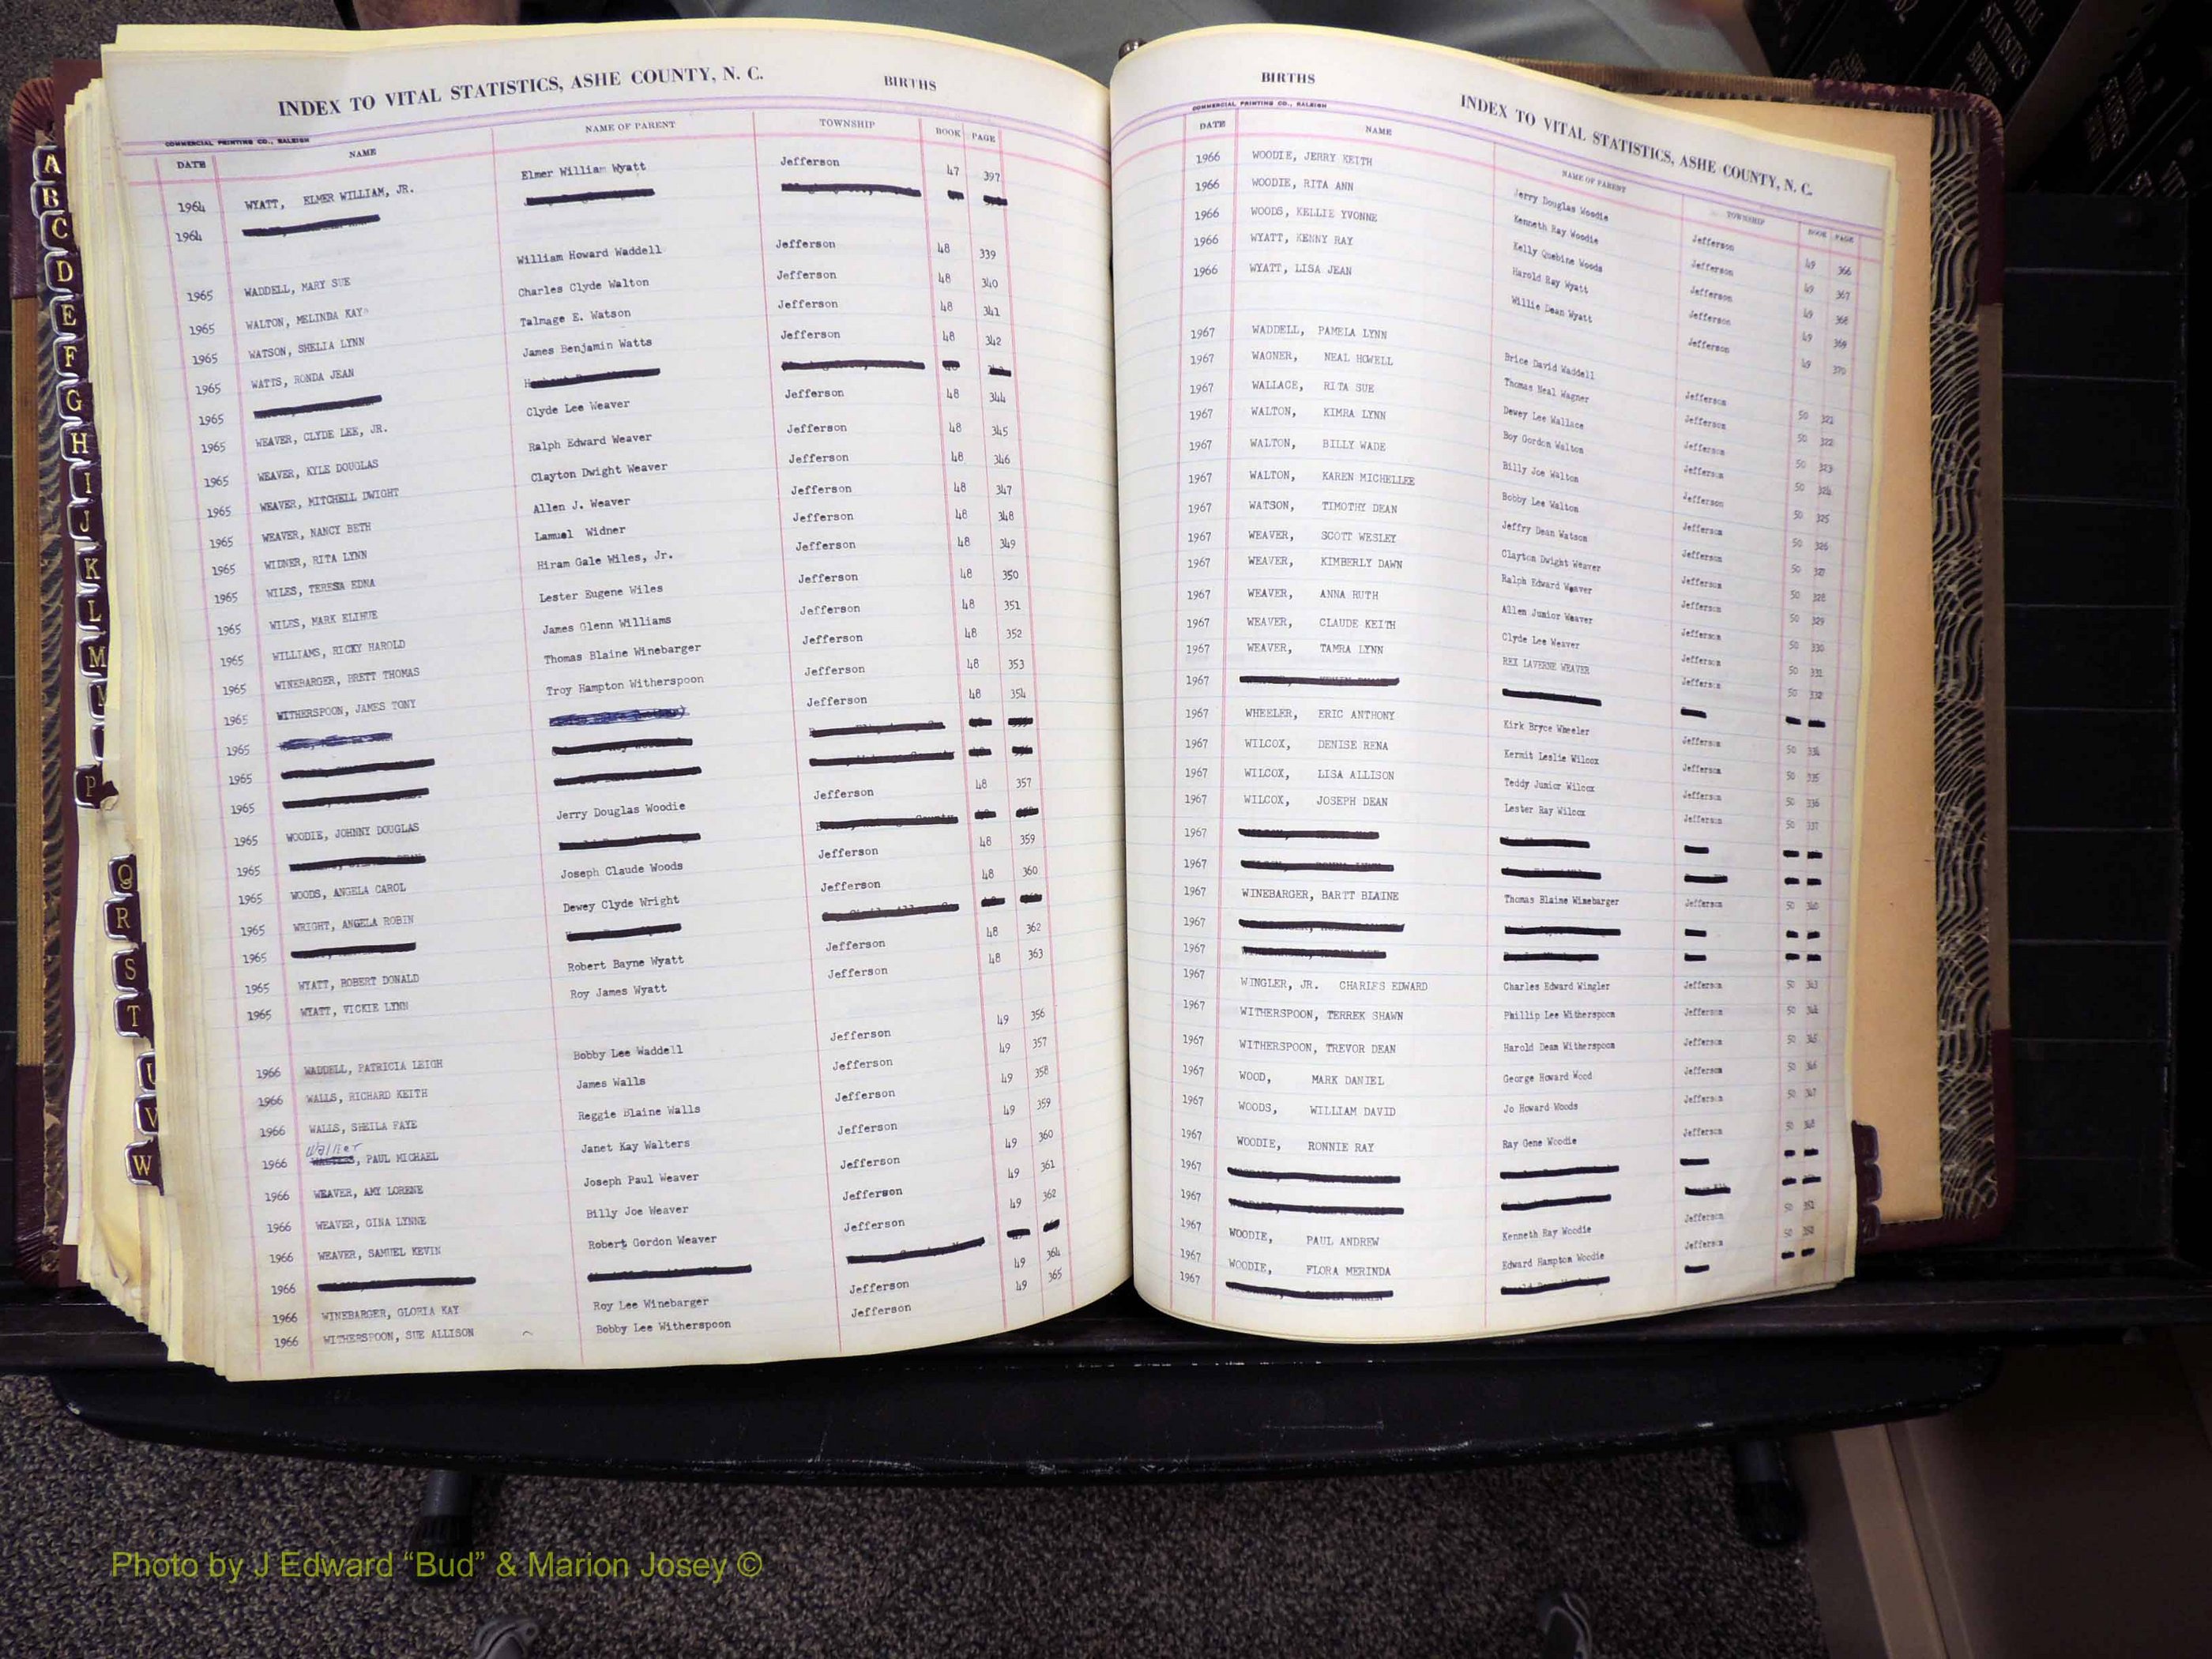 INDEX TO VITAL STATISTICS, ASHE COUNTY, N. C. BIRTHS
COMMERCIAL PRINTING CO., RALEIGH
DATE NAME NAME OF PARENT TOWNSHIP BOOK PAGE
1964 WYATT, ELMER WILLIAM, JR. Elmer William Wyatt Jefferson 47 397
1964
1965 WADDELL, MARY SUE William Howard Waddell Jefferson 48 339
1965 WALTON, MELINDA KAY Charles Clyde Walton Jefferson 48 340
1965 WATSON, SHELIA LYNN Talmage E. Watson Jefferson 48 341
1965 WATTS, RONDA JEAN James Benjamin Watts Jefferson 48 342
1965
1965 WEAVER, CLYDE LEE, JR. Clyde Lee Weaver Jefferson 48 344
1965 WEAVER, KYLE DOUGLAS Ralph Edward Weaver Jefferson 48 345
1965 WEAVER, MITCHELL DWIGHT Clayton Dwight Weaver Jefferson 48 346
1965 WEAVER, NANCY BETH Allen J. Weaver Jefferson 48 347
1965 WIDNER, RITA LYNN Lamual Widner Jefferson 48 348
1965 WILES, TERESA EDNA Hiram Gale Wiles, Jr. Jefferson 48 349
1965 WILES, MARK ELIHUE Lester Eugene Wiles Jefferson 48 350
1965 WILLIAMS, RICKY HAROLD James Glenn Williams Jefferson 48 351
1965 WINEBARGER, BRETT THOMAS Thomas Blaine Winebarger Jefferson 48 352
1965 WITHERSPOON, JAMES TONY Troy Hampton Witherspoon Jefferson 48 353
1965 Jefferson 48 354
1965
1965
1965 WOODIE, JOHNNY DOUGLAS Jerry Douglas Woodie Jefferson 48 357
1965
1965 WOODS, ANGELA CAROL Joseph Claude Woods Jefferson 48 359
1965 WRIGHT, ANGELA ROBIN Dewey Clyde Wright Jefferson 48 360
1965
1965 WYATT, ROBERT DONALD Robert Bayne Wyatt Jefferson 48 362
1965 WYATT, VICKIE LYNN Roy James Wyatt Jefferson 48 363
1966 WADDELL, PATRICIA LEIGH Bobby Lee Waddell Jefferson 49 356
1966 WALLS, RICHARD KEITH James Walls Jefferson 49 357
1966 WALLS, SHEILA FAYE Reggie Blaine Walls Jefferson 49 358
Walter
1966 , PAUL MICHAEL Janet Kay Walters Jefferson 49 359
1966 WEAVER, AMY LORENE Joseph Paul Weaver Jefferson 49 360
1966 WEAVER, GINA LYNNE Billy Joe Weaver Jefferson 49 361
1966 WEAVER, SAMUEL KEVIN Robert Gordon Weaver Jefferson 49 362
1966
1966 WINEBARGER, GLORIA KAY Roy Lee Winebarger Jefferson 49 364
1966 WITHERSPOON, SUE ALLISON Bobby Lee Witherspoon Jefferson 49 365
A
B
C
D
E
F
G
H
I
J
K
L
M
P
Q
R
S
T
U
V
W
BIRTHS INDEX TO VITAL STATISTICS, ASHE COUNTY, N. C.
COMMERCIAL PRINTING CO., RALEIGH
DATE NAME NAME OF PARENT TOWNSHIP BOOK PAGE
1966 WOODIE, JERRY KEITH Jerry Douglas Woodie Jefferson 49 366
1966 WOODIE, RITA ANN Kenneth Ray Woodie Jefferson 49 367
1966 WOODS, KELLIE YVONNE Kelly Quebine Woods Jefferson 49 368
1966 WYATT, KENNY RAY Harold Ray Wyatt Jefferson 49 369
1966 WYATT, LISA JEAN Willie Dean Wyatt Jefferson 49 370
1967 WADDELL, PAMELA LYNN Brice David Waddell Jefferson 50 321
1967 WAGNER, NEAL HOWELL Thomas Neal Wagner Jefferson 50 322
1967 WALLACE, RITA SUE Dewey Lee Wallace Jefferson 50 323
1967 WALTON, KIMRA LYNN Boy Gordon Walton Jefferson 50 324
1967 WALTON, BILLY WADE Billy Joe Walton Jefferson 50 325
1967 WALTON, KAREN MICHELLEE Bobby Lee Walton Jefferson 50 326
1967 WATSON, TIMOTHY DEAN Jeffry Dean Watson Jefferson 50 327
1967 WEAVER, SCOTT WESLEY Clayton Dwight Weaver Jefferson 50 328
1967 WEAVER, KIMBERLY DAWN Ralph Edward Weaver Jefferson 50 329
1967 WEAVER, ANNA RUTH Allen Junior Weaver Jefferson 50 330
1967 WEAVER, CLAUDE KEITH Clyde Lee Weaver Jefferson 50 331
1967 WEAVER, TAMRA LYNN REX LAVERNE WEAVER Jefferson 50 332
1967
1967 WHEELER, ERIC ANTHONY Kirk Bryce Wheeler Jefferson 50 334
1967 WILCOX, DENISE RENA Kermit Leslie Wilcox Jefferson 50 335
1967 WILCOX, LISA ALLISON Teddy Junior Wilcox Jefferson 50 336
1967 WILCOX, JOSEPH DEAN Lester Ray Wilcox Jefferson 50 337
1967
1967
1967 WINEBARGER, BARTT BLAINE Thomas Blaine Winebarger Jefferson 50 340
1967
1967
1967 WINGLER, JR. CHARLES EDWARD Charles Edward Wingler Jefferson 50 343
1967 WITHERSPOON, TERREK SHAWN Phillip Lee Witherspoon Jefferson 50 344
1967 WITHERSPOON, TREVOR DEAN Harold Dean Witherspoon Jefferson 50 345
1967 WOOD, MARK DANIEL George Howard Wood Jefferson 50 346
1967 WOODS, WILLIAM DAVID Jo Howard Woods Jefferson 50 347
1967 WOODIE, RONNIE RAY Ray Gene Woodie Jefferson 50 348
1967
1967
1967 WOODIE, PAUL ANDREW Kenneth Ray Woodie Jefferson 50
1967 WOODIE, FLORA MERINDA Edward Hampton Woodie Jefferson 50
1967
VITAL STATISTICS BIRTHS
Photo by J Edward “Bud” & Marion Josey ©